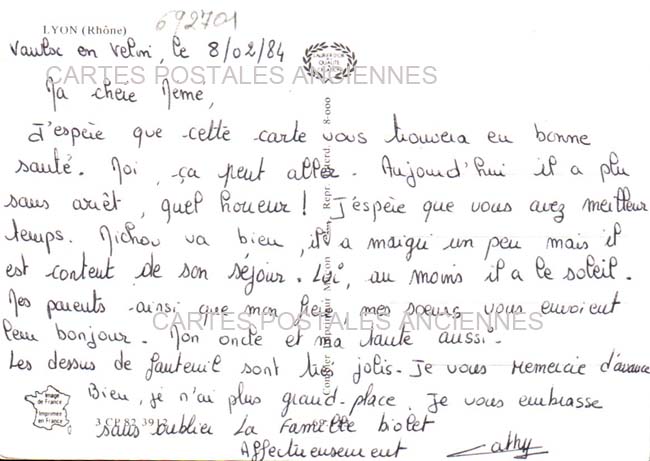 LYON (Rhône)
692701
Vaulx en Velin, le 8/02/84
CARTES POSTALES ANCIENNES
Ma chère Mémé,
J'espère que cette carte vous trouvera en bonne
santé. Moi, ça peut aller. Aujourd'hui il a plu
sans arrêt, quel horreur! J'espère que vous avez meilleur
temps. Michou va bien, il a maigri un peu mais il
est content de son séjour. Lui, au moins il a le soleil.
Mes parents ainsi que mon frère, mes soeurs vous envoient
CARTES POSTALES ANCIENNES
leur bonjour. Mon oncle et ma tante aussi.
Les dessus de fauteuil sont très jolis. Je vous remercie d'avance
Bien, je n'ai plus grand place. Je vous embrasse
sans oublier La Famille biolet
Affectueusement Cathy
Image
de France
Imprimée
en France